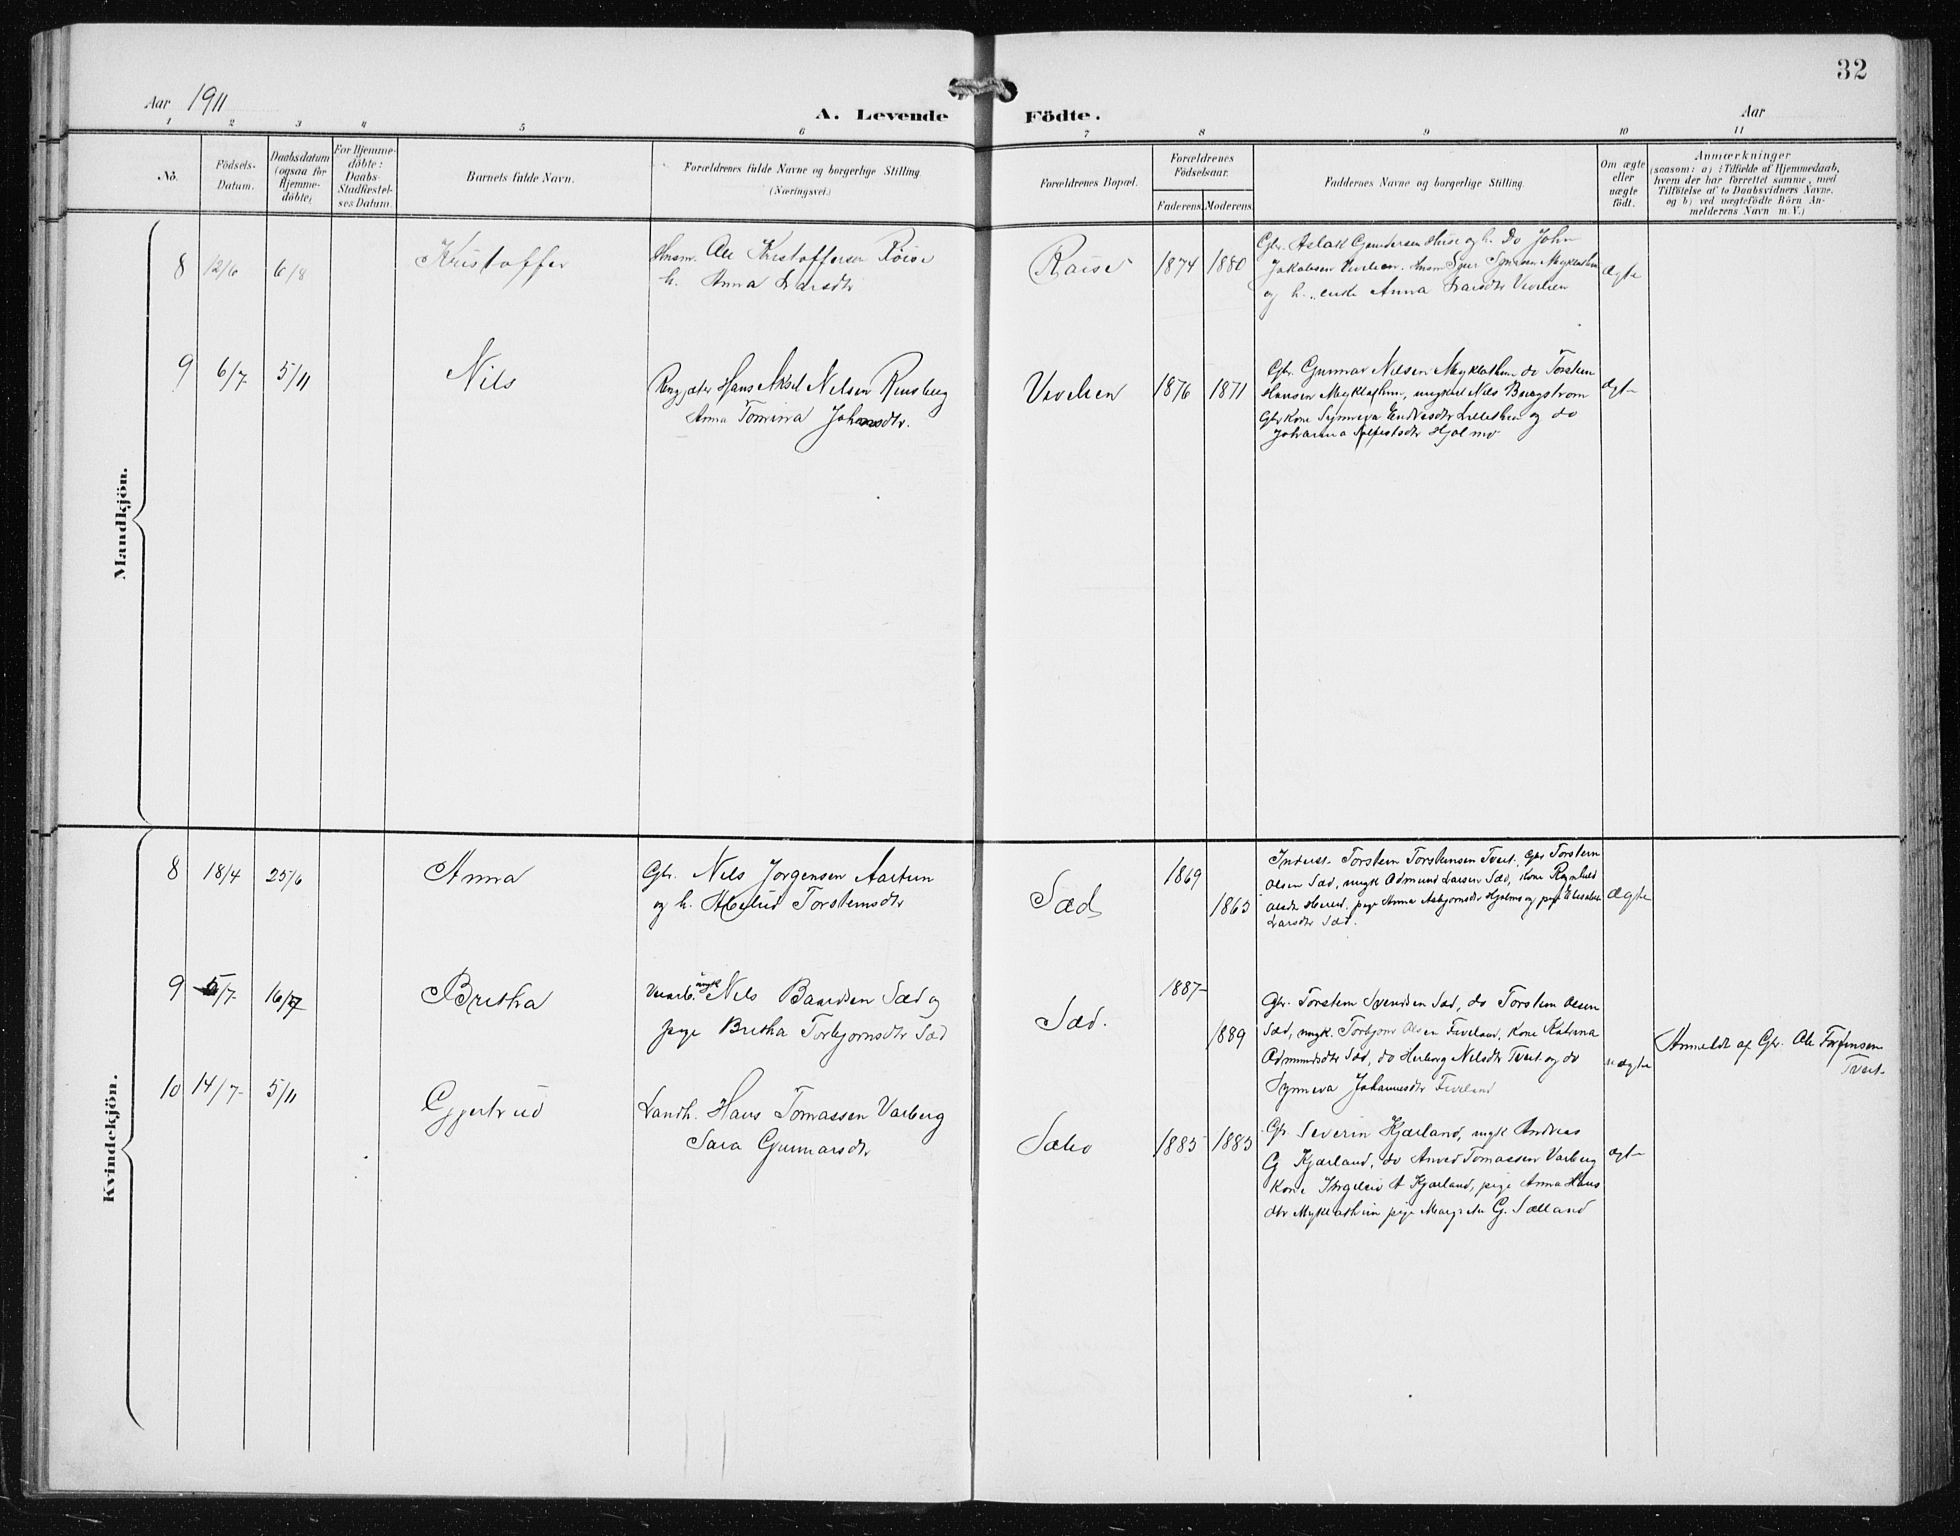 32
Aar 1911
A. Levende Födte.
Aar
1 2 3 4 5 6 7 8 9 10 11
No.
Födsels-Datum.
Daabsdatum (ogsaa for Hjemme-döbte)
For Hjemme-döbte: Daabs-Stadfæstel-ses Datum.
Barnets fulde Navn.
Forældrenes fulde Navne og borgerlige Stilling.
(Næringsvei.)
Forældrenes Bopæl.
Forældrenes Födselsaar.
Faderens Moderens
Faddernes Navne og borgerlige Stilling.
Om ægte eller uægte födt.
Anmærkninger
(saasom: a) i Tilfælde af Hjemmedaab,
hvem der har forrettet samme, med
Tilföielse af to Daabsvidners Navne,
og b) ved uægtefödte Börn An-
melderens Navn m. V.)
Mandkjön.
8 12/6 6/8 Kristoffer
Husm. Ole Kristoffersen Röise
h. Anna Larsdtr
Röise 1874 1880
Gbr. Aslak Gundersen Huse og h. Do John
Jakobsen Vivelien. Husm Sjur Myklathun
og h. enke Anna Larsdtr Vivelien
ægte
9 6/7 5/11 Nils
Hans Aksel Nilsen Rensberg
Anna Tomina Johansdtr.
Vivelien 1876 1871
Gbr. Gunnar Nilsen Myklathun do Torstein
Hansen Myklathun, ungkarl Nils Bergstrom
Gbrkone Synneva Endresdtr Lillethun og do
Johanna Hjolmo
ægte
Kvindekjön.
8 18/4 25/6 Anna
Gbr. Nils Jørgensen Aartun
og h. Torsteinsdtr
Sæd 1869 1865
Torstein Torsteinsen Tveit. Gbr Torstein
Olsen Sæd, ungk Odmund Larsen Sæd, Kone Ragnhild
Olsdtr pige Anna Asbjornsdtr Hjolmo og pige Elisabet
Larsdtr Sæd.
ægte
9 5/7 16/7 Britha
ungk Nils Baardsen Sæd og
pige Britha Torbjornsdtr Sæd
Sæd. 1887 1889
Gbr. Torstein Svendsen Sæd, do Torstein Olsen
Sæd, ungk. Torbjorn Olsen Fiveland, Kone Katrina
Odmundsdtr Sæd, do Herborg Nilsdtr Tveit og do
Synneva Johannesdtr Fiveland
uægte
Anmeldt af Gbr. Ole Torfinsen
Tveit.
10 14/7 5/11 Gjertrud
Landh. Hans Tomassen Varberg
Sara Gunnarsdtr
Sæbo 1885 1885
Gbr Severin Kjærland, ungk Andreas
G Kjærland, do Anved Tomassen Varberg
Kone Ingeleiv A Kjærland, pige Anna Hans
dtr Myklathun pige Margreta G. Sælland
ægte